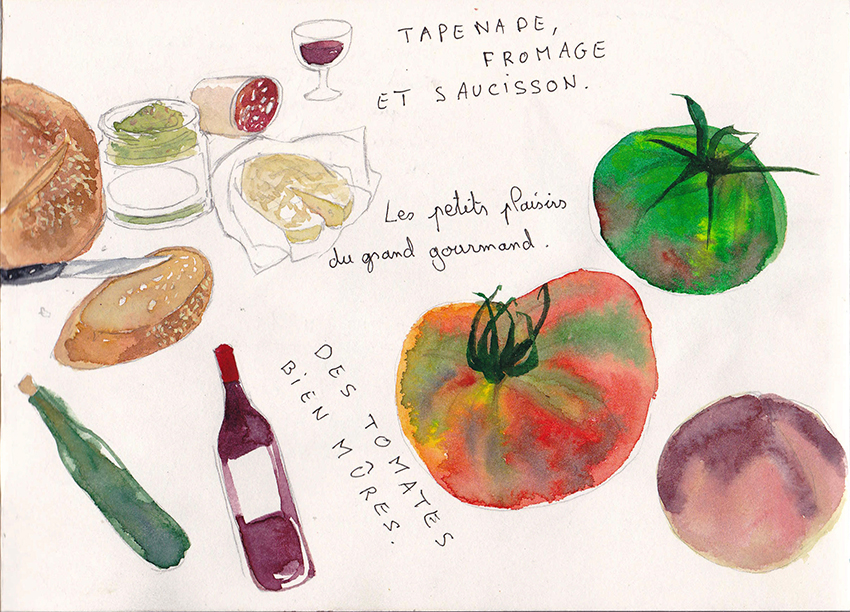 TAPENADE,
FROMAGE
ET SAUCISSON.
Les petits plaisirs
du grand gourmand.
DES TOMATES
BIEN MÛRES.